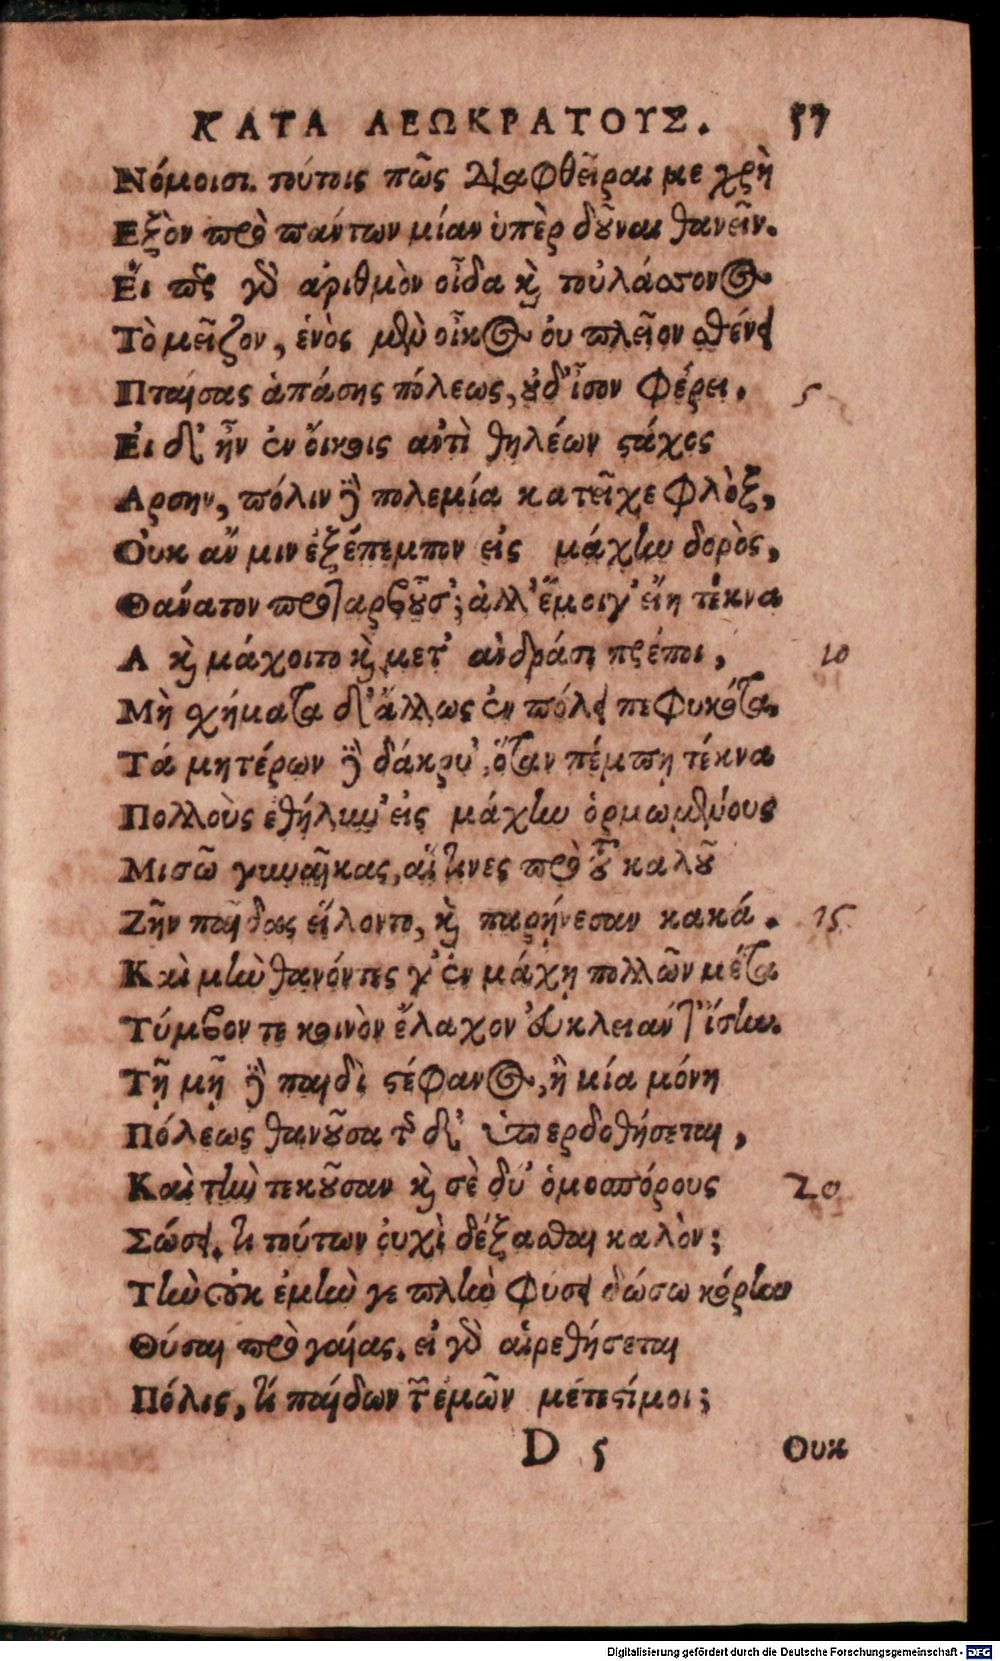 ΚΑΤΑ ΛΕΩΚΡΑΤΟΥΣ. 57
Νόμοισι. τούτοις πῶς διαφθεῖραι με χρὴ
Εξὸν πρὸ πάντων μίαν ὑπὲρ δοῦναι θανεῖν.
Εἴ τοὺς γὸ ἀριθμὸν οἶδα καὶ τοὐλάσσονος
Τὸ μεῖζον, ἑνὸς μὲν οἶκος ου πλεῖον σθένει
Πταίσας ἁπάσης πόλεως, οὐδ' ἴσον φέρει. 5
Εἰ δ' ἦν ἐν οἴκοις ἀντὶ θηλέων στάχος
Αρσην, πόλιν δὲ πολεμία κατεῖχε φλὸξ,
Οὐκ ἄν μιν ἐξέπεμπον εἰς μάχην δορὸς,
Θάνατον προταρβοῦσ'; ἀλλ' ἔμοιγ' εἴη τέκνα
Α καὶ μάχοιτο καὶ μετ' ἀνδράσι πρέποι, 10
Μὴ χήματα δ' ἄλλως ἐν πόλει πεφυκότα,
Τά μητέρων δὲ δάκρυ' ὅταν πέμπῃ τέκνα
Πολλοὺς ἐθήλυν' εἰς μάχην ὁρμωμένους
Μισῶ γυναῖκας, αἵτινες πρὸ τοῦ καλοῦ
Ζῆν παῖδας εἵλοντο, καὶ παρῄνεσαν κακά. 15
Καὶ μὴν θανόντες γ' ἐν μάχῃ πολλῶν μέτα
Τύμβον τε κοινὸν ἔλαχον εὔκλειάν τ' ἴσην.
Τῇ μῇ δὲ παιδὶ στέφανος, ἢ μία μόνη
Πόλεως θανοῦσα τῆς δ' ὑπερδοθήσεται,
Καὶ τὴν τεκοῦσαν καὶ σὲ δύ' ὁμοσπόρους 20
Σώσει. τί τούτων οὐχὶ δέξασθαι καλὸν;
Τὴν οὐκ ἐμὴν γε πλὴν φύσει δώσω κόρην
Θύσαι πρὸ γαίας. εἰ γὸ αἱρεθήσεται
Πόλις, τί παίδων τῶν ἐμῶν μέτεστί μοι;
D 5 Ουκ
Digitalisierung gefördert durch die Deutsche Forschungsgemeinschaft - DFG